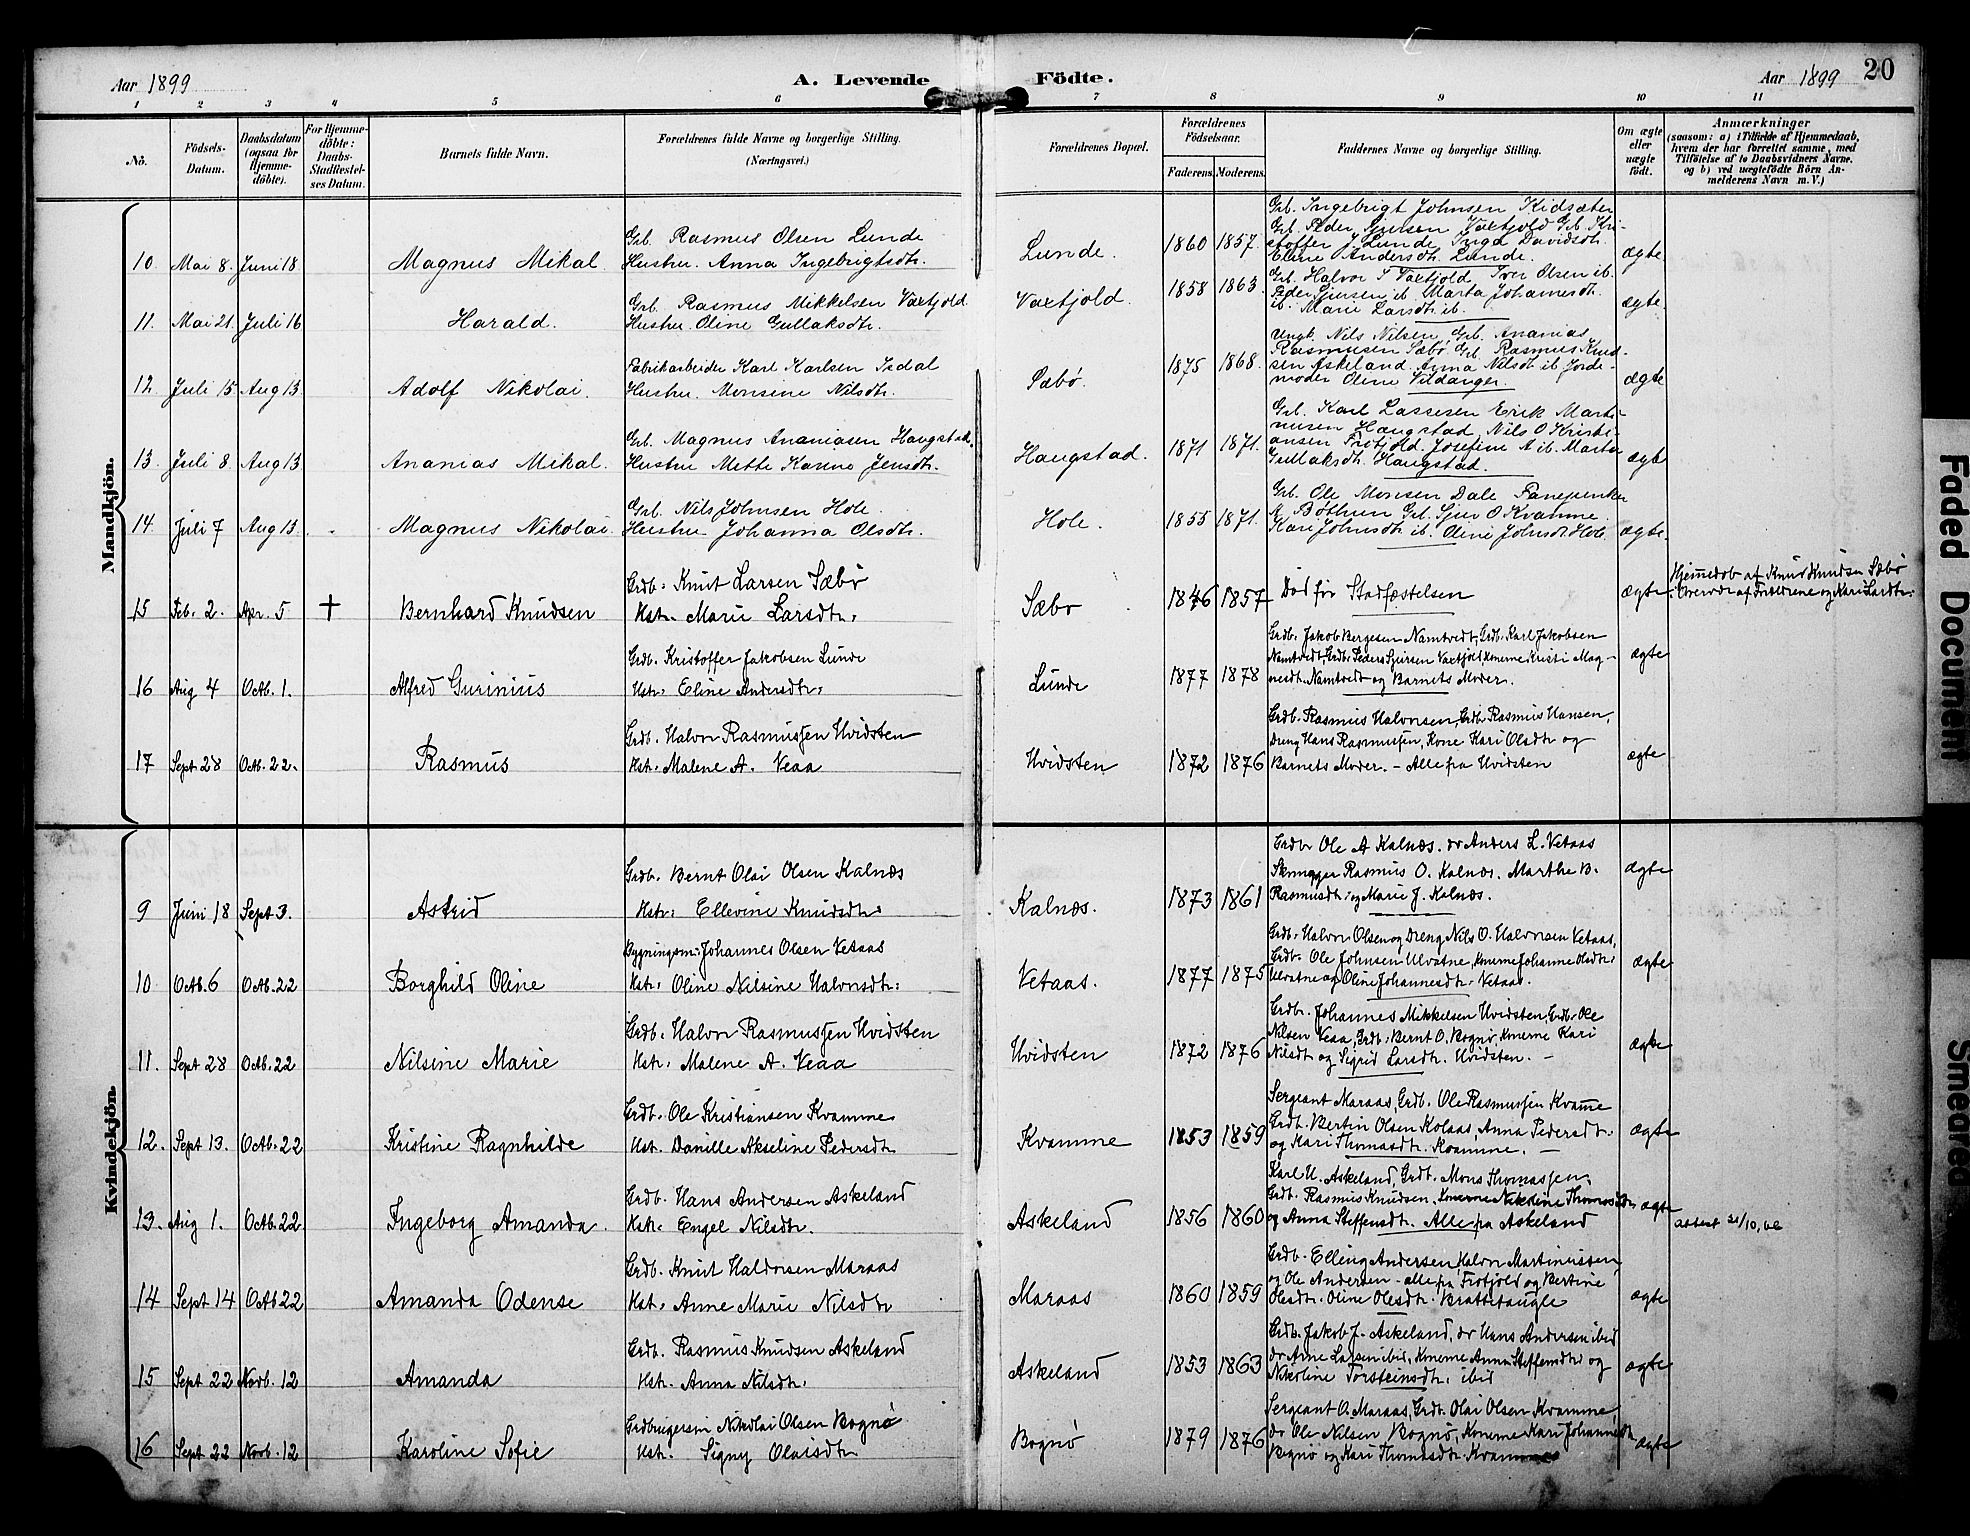 Aar 1899
A. Levende Födte.
Aar 1899
20
1 2 3 4 5 6 7 8 9 10 11
No.
Födsels-Datum.
Daabsdatum (ogsaa for Hjemme-döbte).
For Hjemme-döbte: Daabs-Stadfæstel-ses Datum.
Barnets fulde Navn.
Forældrenes fulde Navne og borgerlige Stilling. (Næringsvei.)
Forældrenes Bopæl.
Forældrenes Födselsaar.
Faderens. Moderens.
Faddernes Navne og borgerlige Stilling.
Om ægte eller uægte födt.
Anmærkninger
(saasom: a) i Tilfælde af Hjemmedaab,
hvem der har forrettet samme, med
Tilföielse af to Daabsvidners Navne.
og b) ved uægtefödte Börn An-
melderens Navn m. V.)
Mandkjön.
10. Mai 8. Juni 18 Magnus Mikal
Grb. Rasmus Olsen Lunde
Hustru Anna Ingebrigtsdtr.
Lunde. 1860 1857.
Grb. Ingebrigt Johnsen Kidsæter
Grb. Peder Sjursen Vaxtjold Grb. Kri-
stoffer J. Lunde, Inga Davidsdtr.
Eline Andersdtr. Lunde.
ægte
11. Mai 21. Juli 16 Harald.
Grb. Rasmus Mikkelsen Vaxtjold
Hustru Oline Gullaksdtr.
Vaxtjold. 1858 1863.
Grb. Halvor S Vaxtjold Iver Olsen ib.
Peder Sjursen ib. Marta Johannesdtr.
ib. Marie Larsdtr ib.
ægte.
12. Juli 15 Aug 13. Adolf Nikolai.
Fabrikarbeider Karl Karlsen Isdal
Hustru Monsine Nilsdtr.
Sæbø. 1875 1868.
Ungk. Nils Nilsen, Grb. Ananias
Rasmusen Sæbø, Grb. Rasmus Knud-
sen Askeland. Anna Nilsdtr ib. Jorde-
moder Oline Vildanger.
ægte
13. Juli 8 Aug 13 Ananias Mikal.
Grb. Magnus Ananiasen Haugstad.
Hustru Mette Karine Jensdtr.
Haugstad. 1871 1871.
Grb. Karl Lassesen Erik Marti-
nusen Haugstad, Nils O Kristi-
ansen Frotjold. Josefine A ib. Marta
Gullaksdtr. Haugstad.
ægte
14. Juli 7 Aug 13. Magnus Nikolai.
Grb. Nils Johnsen Hole.
Hustru Johanna Olsdtr.
Hole. 1855 1871.
Grb. Ole Monsen Dale
Bøthun Grb. Sjur O Kvamme.
Kari Johnsdtr ib. Oline Johnsdtr. Hole.
ægte.
15 Feb. 2. Apr. 5 † Bernhard Knudsen
Grdb. Knut Larsen Sæbø
Hstr. Marie Larsdtr.
Sæbø 1846 1857
Død før Stadfæstelsen
ægte
Hjemmedøb. af Knud Knudsen Sæbø
Overvær af Forældrene og Kari Larsdtr.
16 Aug 4 Octb. 1. Alfred Gurinius
Grdb. Kristoffer Jakobsen Lunde
Hstr. Eline Andersdtr.
Lunde 1877 1878
Grdb. Jakob Børgesen Namtvedt, Grdb. Karl Jakobsen
Namtvedt, Grdb. Peder Sjursen Vaxtjold, Konerne Kristi Mag-
nesdtr. Namtvedt og Barnets Moder.
ægte
17 Sept 28 Octb. 22. Rasmus
Grdb. Halvor Rasmussen Hvidsten
Hstr. Malene A. Veaa
Hvidsten 1872 1876
Grdb. Rasmus Halvorsen, Grdb Rasmus Hansen,
Dreng Hans Rasmussen, Kone Kari Olsdtr og
Barnets Moder. - Alle fra Hvidsten
ægte
Kvindekjön.
9 Juni 18 Sept 3. Astrid
Grdb. Bernt Olai Olsen Kalnæs
Hstr. Ellevine Knudsdtr.
Kalnæs. 1873 1861
Grdbr Ole A Kalnæs. dr Anders L. Vetaas
Rasmus O. Kalnæs. Marthe B.
Rasmusdtr. og Marie J. Kalnæs.
ægte
10 Octb. 6 Octb. 22 Borghild Oline
Bygningsm. Johannes Olsen Vetaas
Hstr. Oline Nilsine Halvorsdtr.
Vetaas. 1877 1875
Grdb. Halvor Olsen og Dreng Nils O. Halvorsen Vetaas,
Grdb. Ole Johnsen Ulvatne, Konerne Johanne Olsdtr.
Ulvatne og Oline Johannesdtr. Vetaas.
ægte
11. Sept 28 Octb. 22 Nilsine Marie
Grdb. Halvor Rasmussen Hvidsten
Hstr. Malene A. Veaa
Hvidsten 1872 1876
Grdbr. Johannes Mikkelsen Hvidsten, Grdb. Ole
Nilsen Veaa, Grdb. Bernt O. Bognø, Konerne Kari
Nilsdtr og Sigrid Larsdtr. Hvidsten. -
ægte
12. Sept 13. Octb. 22 Kristine Ragnhilde
Grdb. Ole Kristiansen Kvamme
Hst. Danille Akseline Pedersdtr
Kvamme 1853 1859
Sergeant Maraas, Grdb. Ole Rasmussen Kvamme
Grdb. Bertin Olsen Kolaas, Anna Pedersdtr.
og Kari Thomasdtr. Kvamme. -
ægte
13. Aug 1. Octb. 22 Ingeborg Amanda.
Grdb. Hans Andersen Askeland
Hstr. Engel Nilsdtr.
Askeland 1856 1860
Karl H. Askeland, Grdb. Mons Thomassen,
Grdb. Rasmus Knudsen, Konerne Nikoline Thomasdtr
og Anna Steffensdtr. Alle fra Askeland
ægte
attest
14 Sept 14 Octb 22 Amanda Odense
Grdb. Knut Haldorsen Maraas
Hst. Anne Marie Nilsdtr
Maraas 1860 1859
Grdb. Elling Andersen, Halvor Martinussen,
og Ole Andersen - alle fra Frotjold og Bertine
Olesdtr. Oline Olesdtr. Brattetaugle
ægte
15 Sept 22 Novb. 12 Amanda
Grdb. Rasmus Knudsen Askeland
Hst. Anna Nilsdtr.
Askeland 1853 1863
Grdb. Jakob J. Askeland, dr Hans Andersen ibid
dr Arne Larsen ibid, Konerne Anna Steffensdtr og
Nikoline Torsteinsdtr. ibid
ægte
16 Sept 22 Novb. 12 Karoline Sofie
Grdbrugersøn Nikolai Olsen Bognø
Hst. Signy Olaisdtr
Bognø 1879 1876
Sergeant O. Maraas, Grdb. Olai Olsen Kvamme,
dr Ole Nilsen Bognø, Konerne Kari Johannesdtr
Bognø og Kari Thomasdtr. Kvamme
ægte
Faded Document
Smeared